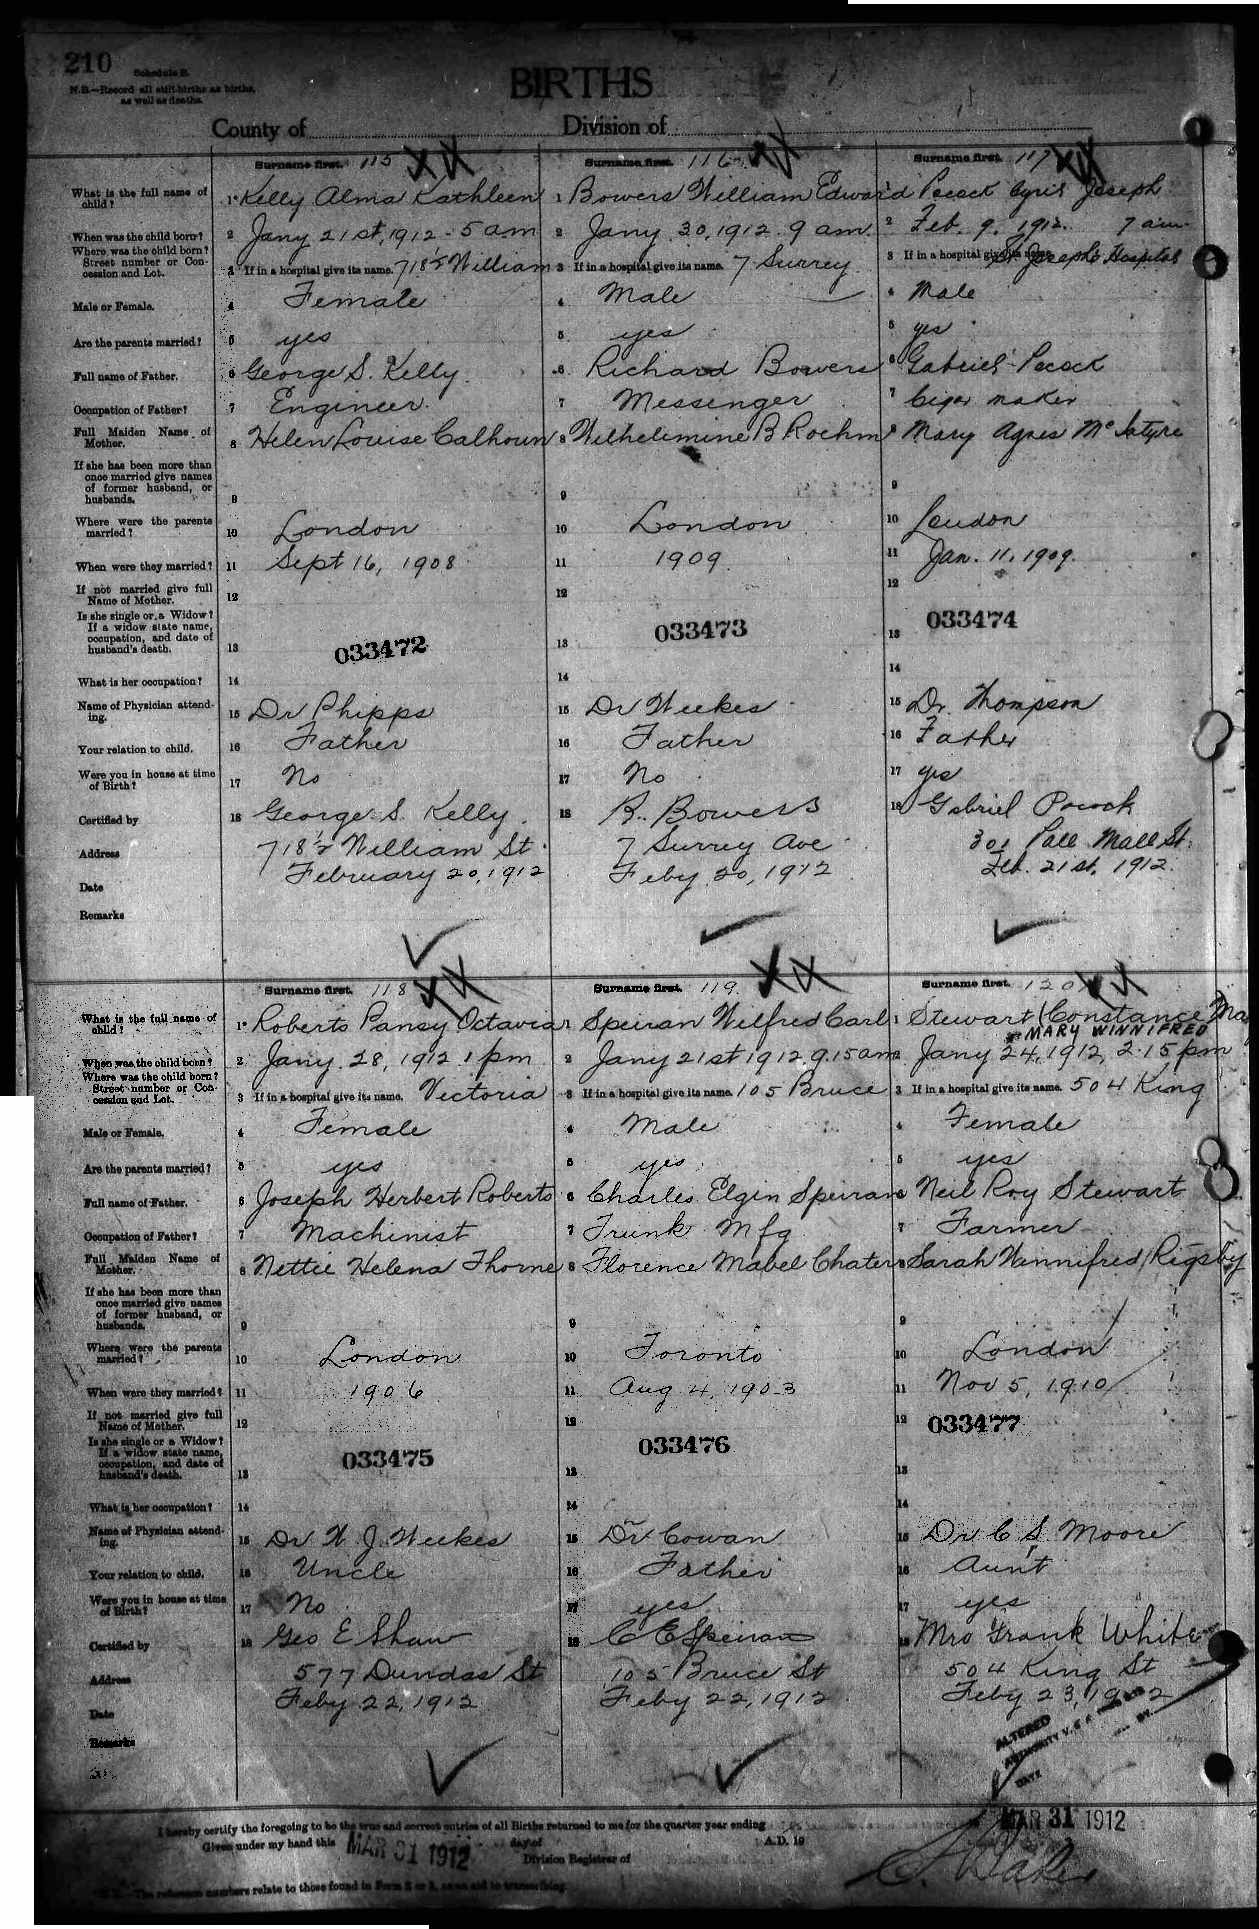 210
Schedule B.
N.B.—Record all still-births as births, as well as deaths.
BIRTHS
County of
Division of
Surname first. 115
Surname first. 116
Surname first. 117
What is the full name of child?
1 Kelly Alma Kathleen
1 Bowers William Edward
1 Pocock Cyril Joseph
When was the child born?
2 Jany 21st, 1912 - 5 am
2 Jany 30, 1912 9 am.
2 Feb. 9. 1912. 7 a.m.
Where was the child born? Street number or Concession and Lot.
3 If in a hospital give its name. 718½ William
3 If in a hospital give its name. 7 Surrey
3 If in a hospital give its name. St Joseph's Hospital
Male or Female.
4 Female
4 Male
4 Male
Are the parents married?
5 yes
5 yes
5 yes
Full name of Father.
6 George S. Kelly.
6 Richard Bowers
6 Gabriel Pocock
Occupation of Father?
7 Engineer.
7 Messenger
7 Cigar maker
Full Maiden Name of Mother.
8 Helen Louise Calhoun
8 Wilhelimine B Roehm
8 Mary Agnes McIntyre
If she has been more than once married give names of former husband, or husbands.
9
9
9
Where were the parents married?
10 London
10 London
10 London
When were they married?
11 Sept 16, 1908
11 1909
11 Jan. 11, 1909.
If not married give full Name of Mother.
12
12
12
Is she single or a Widow? If a widow state name, occupation, and date of husband's death.
13 033472
13 033473
13 033474
What is her occupation?
14
14
14
Name of Physician attending.
15 Dr Phipps
15 Dr Weekes
15 Dr. Thompson
Your relation to child.
16 Father
16 Father
16 Father
Were you in house at time of Birth?
17 No
17 No
17 yes
Certified by
18 George S. Kelly.
18 R. Bowers
18 Gabriel Pocock
Address
718½ William St.
7 Surrey Ave
301 Pall Mall St.
Date
February 20, 1912
Feby 20, 1912
Feb. 21st, 1912.
Remarks
Surname first. 118
Surname first. 119
Surname first. 120
What is the full name of child?
1 Roberts Pansy Octavia
1 Speiran Wilfred Carl
1 Stewart (Constance Ma
MARY WINNIFRED
When was the child born?
2 Jany. 28, 1912 1 pm
2 Jany 21st 1912 9.15 am
2 Jany 24, 1912, 2.15 pm
Where was the child born? Street number or Concession and Lot.
3 If in a hospital give its name. Victoria
3 If in a hospital give its name. 105 Bruce
3 If in a hospital give its name. 504 King
Male or Female.
4 Female
4 Male
4 Female
Are the parents married?
5 yes
5 yes
5 yes
Full name of Father.
6 Joseph Herbert Roberts
6 Charles Elgin Speiran
6 Neil Roy Stewart
Occupation of Father?
7 Machinist
7 Trunk Mfg
7 Farmer
Full Maiden Name of Mother.
8 Nettie Helena Thorne
8 Florence Mabel Chater
8 Sarah Winnifred Rigsby
If she has been more than once married give names of former husband, or husbands.
9
9
9
Where were the parents married?
10 London
10 Toronto
10 London
When were they married?
11 1906
11 Aug 4, 1903
11 Nov 5, 1910
If not married give full Name of Mother.
12
12
12 033477
Is she single or a Widow? If a widow state name, occupation, and date of husband's death.
13 033475
13 033476
13
What is her occupation?
14
14
14
Name of Physician attending.
15 Dr W J Weekes
15 Dr Cowan
15 Dr C S Moore
Your relation to child.
16 Uncle
16 Father
16 Aunt
Were you in house at time of Birth?
17 No
17 yes
17 yes
Certified by
18 Geo E Shaw
18 C E Speiran
18 Mrs Frank White
Address
577 Dundas St
105 Bruce St
504 King St
Date
Feby 22, 1912
Feby 22, 1912
Feby 23, 1912
Remarks
ALTERED
AUTHORITY V. S. A
BY
DATE
I hereby certify the foregoing to be the true and correct entries of all Births returned to me for the quarter year ending MAR 31 1912
Given under my hand this MAR 31 1912 day of A.D. 19
Division Registrar of
N.B.—The reference numbers relate to those found in Form 2 or 3, as an aid to transcribing.